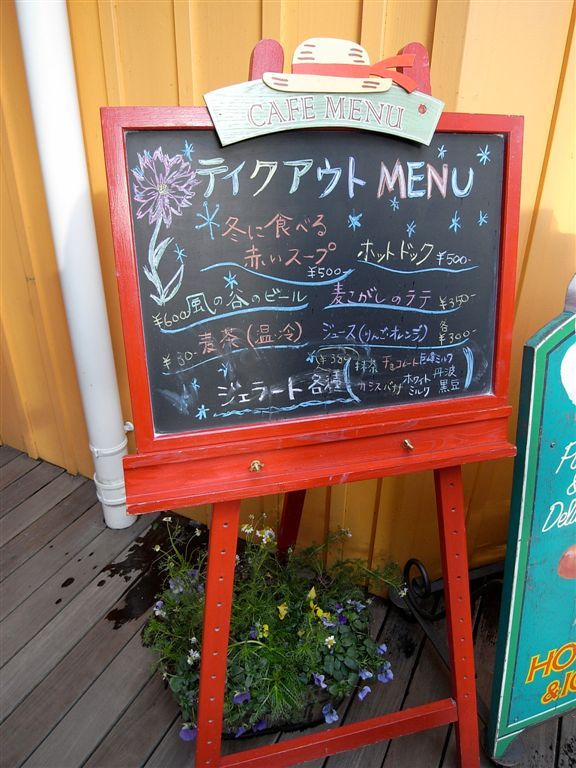 CAFE MENU
テイクアウト MENU
冬に食べる
赤いスープ
¥500-
ホットドック ¥500-
¥600 風の谷のビール
麦こがしのラテ ¥350-
麦茶(温,冷)
ジュース(りんご・オレンジ) 各 ¥300-
ジェラート各種
抹茶 チョコレート 巨峰ミルク
カシスバナナ ホワイトミルク 丹波黒豆
HO
& IC